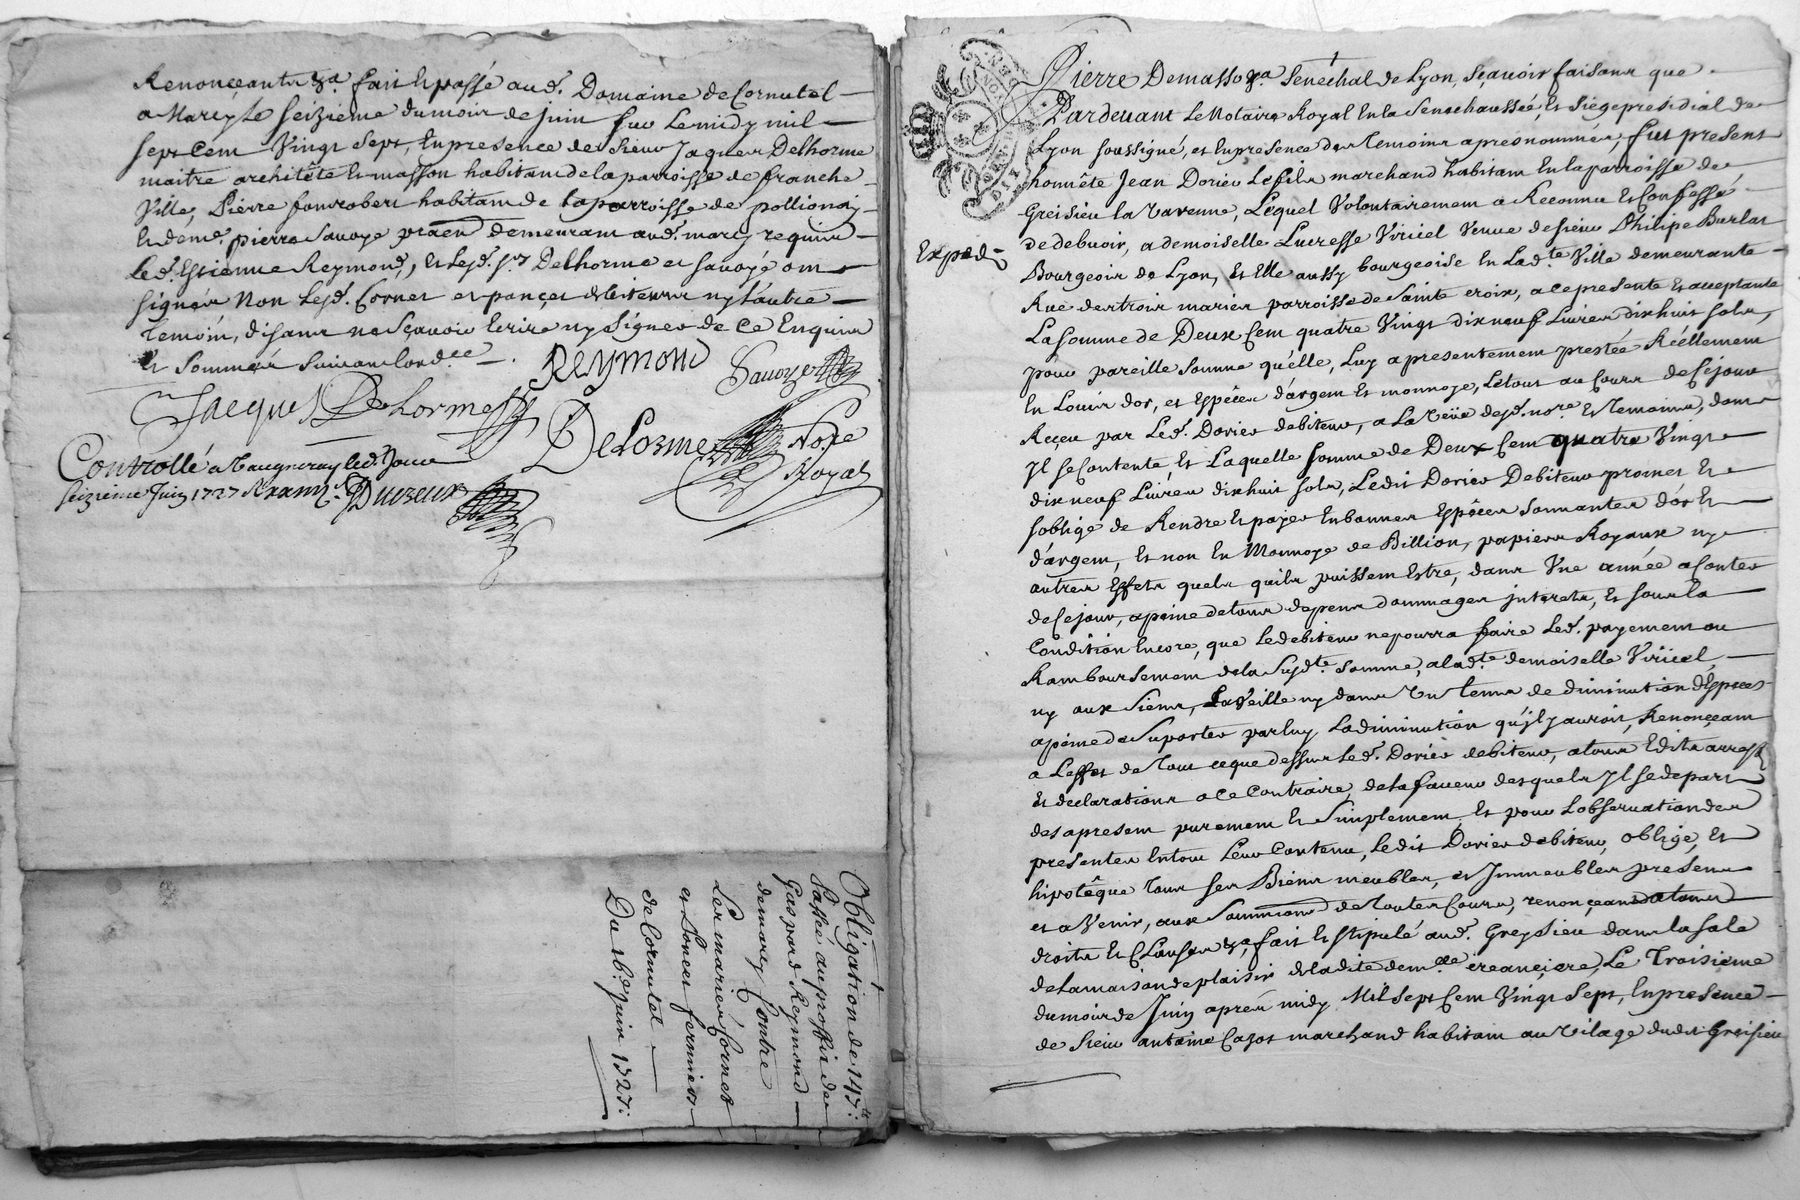 Renonçeants &a. fait et passé aud. Domaine de Cornutel
a Marcy le seizieme du mois de juin sur le midy mil
sept Cent Vingt Sept, En presence de Sieur Jaques Delhorme
maitre architête et masson habitant de la parroisse de franche
Ville, Pierre fonrobert habitant de la parroisse de pollionay
et de me. pierre Savoye praen demeurant aud. marcy requis
led. Estienne Reymond, et lesd. srs Delhorme et Savoye ont
signés Non lesd. Cornet et debiteurs ny l'autre
temoin, disant ne sçavoir Ecrire ny signer de ce Enquis
et sommés suivant lord.ce
REYMOND Savoye
Jacques Delorme
DeLorme Nore Royal
Controllé a Vaugneray led. Jour
seizieme Juin 1727
Obligation de 147 lt.
Passée au proffit de
Gaspard Reymond
de marcy Contre
Les mariés Cornet
et fermiers
de Cornutel
Du 16e juin 1727.
Pierre Demasso &a Senéchal de Lyon, sçavoir faisons que
Pardevant Le Notaire Royal En la Senechaussée, Et Siege presidial de
Lyon soussigné, et En presence des Temoins apres nommés, fut present
honnête Jean Dorier Le fils marchand habitant En la parroisse de
Greisieu la Varenne, Lequel Volontairement a Reconnu Et Confessé
Exped.
de debvoir, a demoiselle Lucresse Viricel Veuve de sieur Philipe Burlat
Bourgeois de Lyon, Et Elle aussy bourgeoise En lad.te Ville demeurante
Rue des trois maries parroisse de Sainte croix, a ce presente Et acceptante
La somme de Deux Cent quatre Vingt dix neuf Livres dix huit sols,
pour pareille somme qu'elle, Luy a presentement prestée Réellement
En Louis dor, et Espêces d'argent Et monnoye, Le tout au Cours de Ce jour
Reçeu par Led. Dorier debiteur, a La Veüe desd. nore Et temoins, dont
Il se Contente, Et Laquelle somme de Deux Cent quatre Vingt
dix neuf Livres dix huit sols, Ledit Dorier Debiteur promet Et
s'oblige de Rendre Et payer En bonnes Espêces sonnantes d'or Et
d'argent, Et non En Monnoye de Billion, papiers Royaux ny
autres Effets quels qu'ils puissent Estre, dans Une année a Conter
de Ce jour, a peine de tous depens dommages interets, Et sous la
Condition Encore, que Le debiteur ne pourra faire Led. payement ou
Ramboursement de la susd.te somme, a lad.te demoiselle Viricel
ny aux siens, La Veille ny dans Un tems de diminution d'Espêces
a peine de suporter par luy La diminution qu'il y auroit, Renonçeant
a L'effet de Tout ce que dessus Led. Dorier debiteur, a tous Edits arrests
Et declarations a Ce Contraire, de la faveur desquels Il se depart
des apresent purement Et Simplement, Et pour L'observation des
presentes En tout Leur Contenu, Ledit Dorier debiteur, oblige, Et
hipotêque Tous ses Biens meubles, et Immeubles presents
et a Venir, aux Soumissions de Toutes Cours, renonçeant a tous
droits Et Clauses &a, fait Et stipulé aud. Greysieu dans la sale
de la maison de plaisir de la dite dem.lle creanciere, Le Troisieme
du mois de Juin aprés midy Mil Sept Cent Vingt Sept, En presence
de Sieur antoine Cazot marchand habitant au Vilage dudit Greisieu